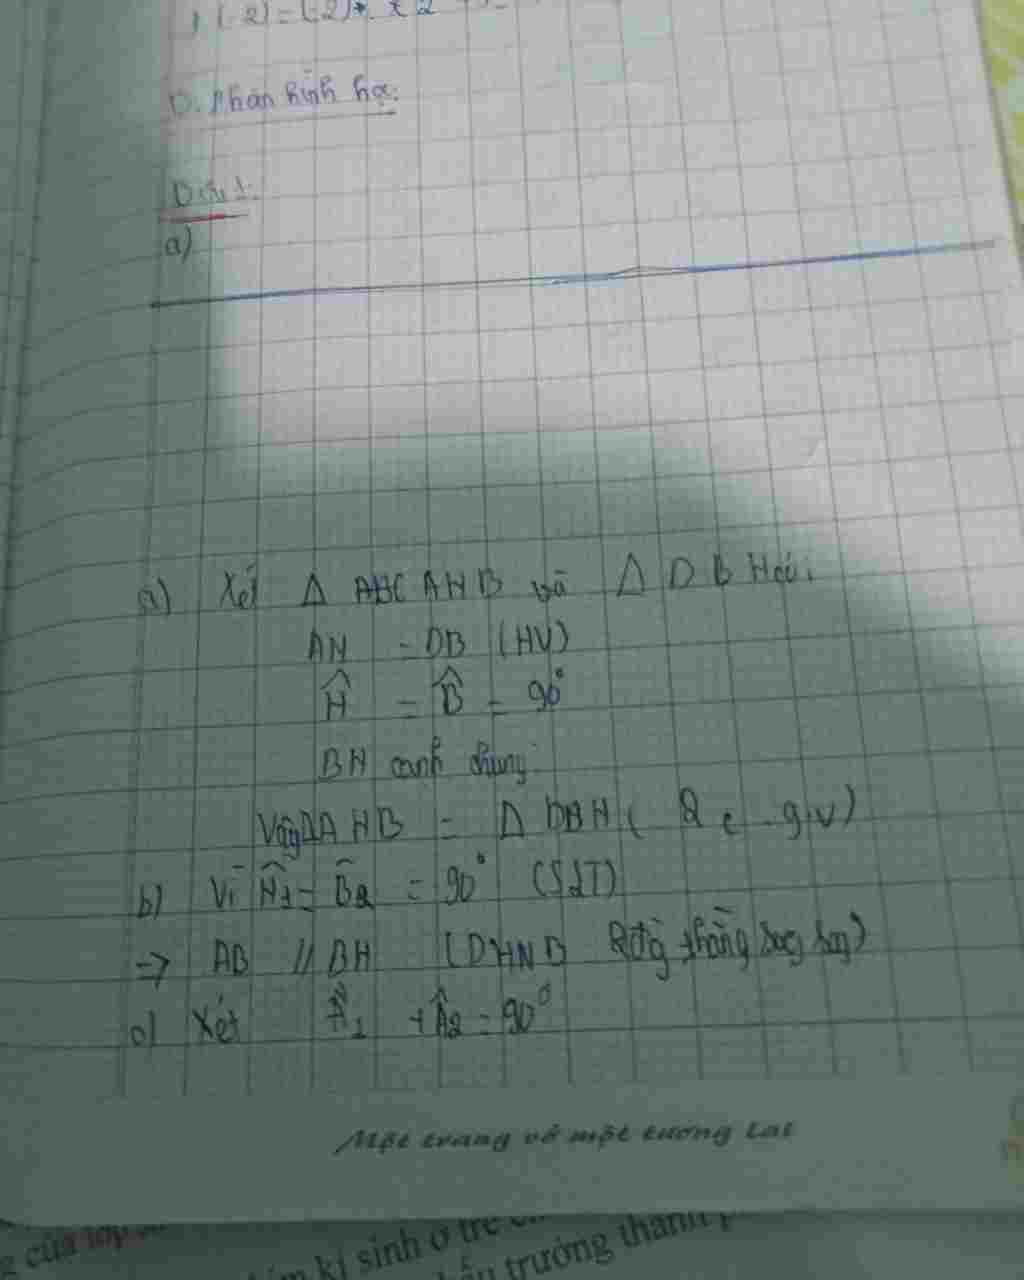 (-2) = (-2)
D. Phần hình học:
Bài 1:
a)
a) Xét Δ ABC AHB và Δ DBH có:
AH = DB (HV)
Ĥ = B̂ = 90°
BH cạnh chung
Vậy ΔAHB = Δ DBH ( 2 c - g.v)
b) Vì Ĥ1 = B̂2 = 90° (SLT)
=> AB // DH (DHNB 2 đg thẳng song song)
c) Xét Â1 + Â2 = 90°
Một trang vở một tương lai
của lớp
kí sinh ở trẻ
trưởng thành